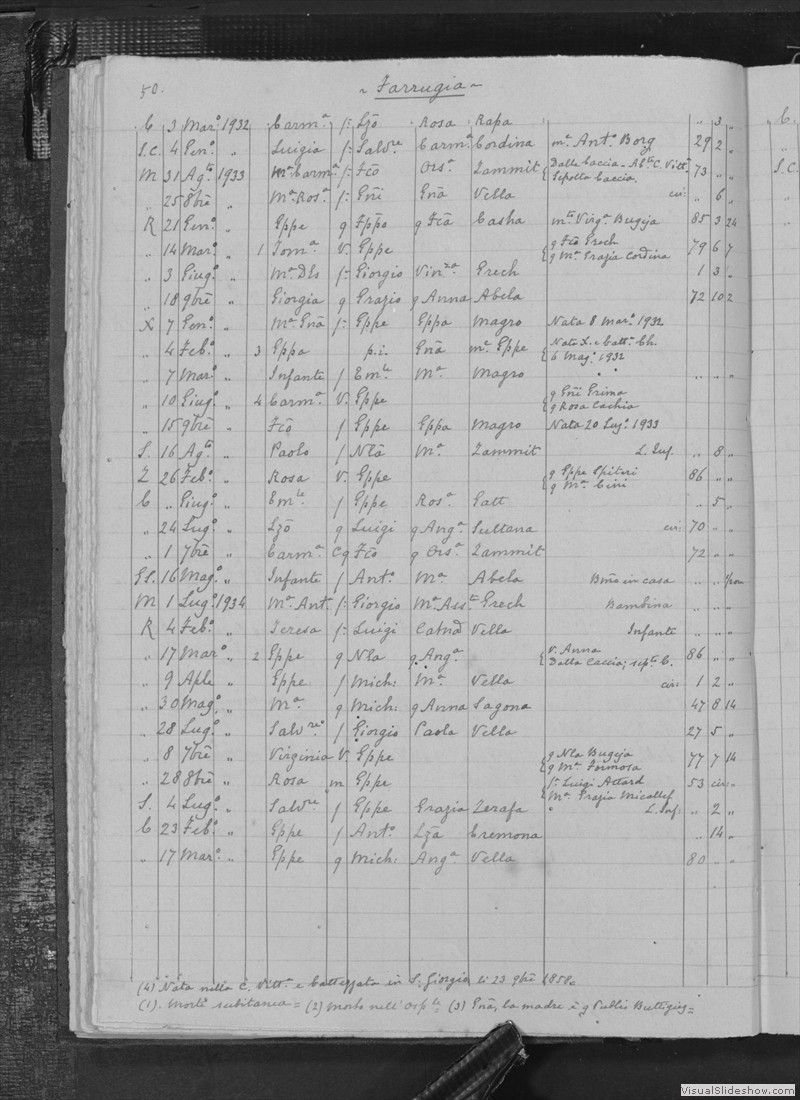 50.
~ Farrugia ~
C 3 Mar.º 1932 Carm.ª f: Lzō Rosa Rapa " 3 "
S.C. 4 Gen.º " Luigia f: Salv.re Carm.ª Cordina m.e Ant.º Borg 29 2 "
M 31 Ag.to 1933 M.ª Carm.ª f: Fcō Ors.ª Zammit { Dalle Caccia - C. Vitt. Sepolta Caccia. 73 " "
" 25 8brē " M.ª Ros.ª f: Gñi Gnā Vella cir: " 6 "
R 21 Gen.º " Gppe g Fppo g Fcā Casha m.to Virg.ª Bugeja 85 3 24
" 14 Mar.º " 1 Tom.ª V. Gppe { g Fcō Grech 79 6 7
g M.ª Grazia Cordina
" 3 Giug.º " M.ª Dls f: Giorgio Vinz.a Grech 1 3 "
" 18 9brē " Giorgia g Grazio g Anna Abela 72 10 2
X 7 Gen.º " M.ª Gnā f: Gppe Gppa Magro Nata 8 Mar.º 1932
" 4 Feb.º " 3 Gppa p.i. Gnā m.e Gppe { Nata X. e Batt.
6 Mag.º 1932
" 7 Mar.º " Infante f Em.le M.ª Magro " " "
" 10 Giug.º " 4 Carm.ª V. Gppe { g Gñi Grima
g Rosa Cachia
" 15 9brē " Fcō f Gppe Gppa Magro Nata 20 Lug.º 1933
S. 16 Ag.to " Paolo f Nlā M.ª Zammit L. Inf. " 8 "
Z 26 Feb.º " Rosa V. Gppe { g Gppe Spiteri 86 " "
g M.ª Cini
C " Giug.º " Em.le f Gppe Ros.ª Gatt " 5 "
" 24 Lug.º " Lzō g Luigi g Ang.ª Sultana cir: 70 " "
" 1 7brē " Carm.ª C g Fcō g Ors.ª Zammit 72 " "
GS. 16 Mag.º " Infante f Ant.º M.ª Abela in casa " "
M 1 Lug.º 1934 M.ª Ant. f: Giorgio M.ª Ass.ta Grech Bambina " " "
R 4 Feb.º " Teresa f: Luigi Vella Infante " " "
" 17 Mar.º " 2 Gppe g Nla g Ang.ª { v. Anna 86 " "
Dalla Caccia; sep.to C.
" 9 Aple " Gppe f Mich: M.ª Vella cir: 1 2 "
" 30 Mag.º " M.ª g Mich: g Anna Sagona 47 8 14
" 28 Lug.º " Salv.re f Giorgio Paola Vella 27 5 "
" 8 7brē " Virginia V. Gppe { g Nla Bugeja 77 7 14
g M.ª Formosa
" 28 8brē " Rosa m Gppe { f: Luigi Attard 53 cir: "
M.ª Grazia Micallef
S. 4 Lug.º " Salv.re f Gppe Grazia Zerafa L. Inf: " 2 "
C 23 Feb.º " Gppe f Ant.º Lzā Cremona " 14 "
" 17 Mar.º " Gppe g Mich: Ang.ª Vella 80 " "
(4) Nata nella C. Vitt.ª e battezzata in S. Giorgio li 23 9brē 1858.
(1). Morte subitanea = (2) Morto nell' Osp.le = (3) Gnā, la madre è g Publio Buttigieg =
C.
"
S.C.
VisualSlideshow.com